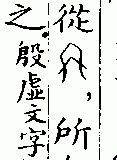 從，所
之。殷虛文字